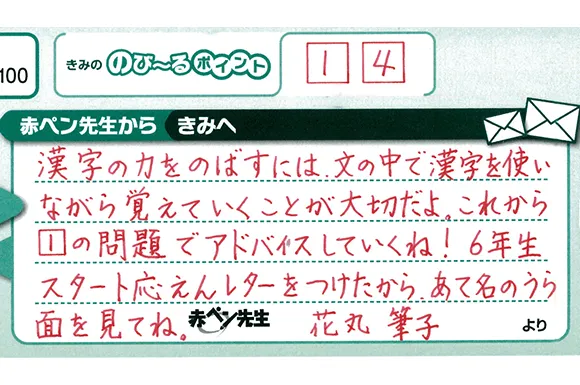 100
きみの のび〜るポイント 1 4
赤ペン先生から きみへ
漢字の力をのばすには、文の中で漢字を使い
ながら覚えていくことが大切だよ。これから
1の問題でアドバイスしていくね!6年生
スタート応えんレターをつけたから、あて名のうら
面を見てね。赤ペン先生 花丸 筆子 より